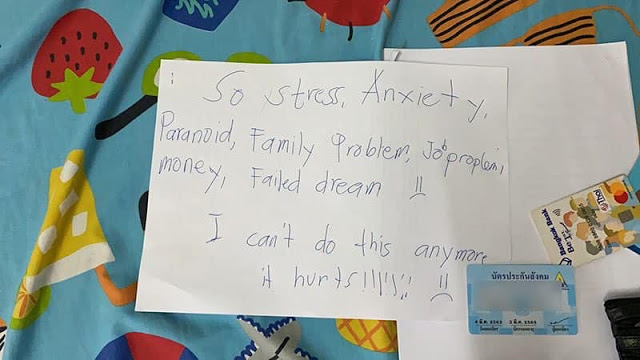 So stress, Anxiety,
Paranoid, Family Problem, Job proplem,
money, Failed dream
I can't do this anymore
it hurts!!!!!!
Bangkok Bank
บัตรประกันสังคม